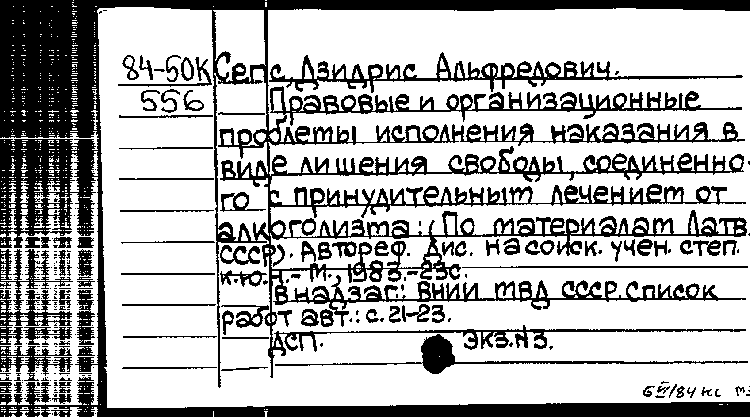 84-50К Сепс, Дзидрис Альфредович.
556 Правовые и организационные
проблемы исполнения наказания в
виде лишения свободы, соединенно-
го с принудительным лечением от
алкоголизма: (По материалам Латв.
СССР). Автореф. дис. на соиск. учен. степ.
к.ю.н. - М., 1983.-23с.
В надзаг.: ВНИИ МВД СССР. Список
работ авт.: с. 21-23.
ДСП. ЭКЗ.№3.